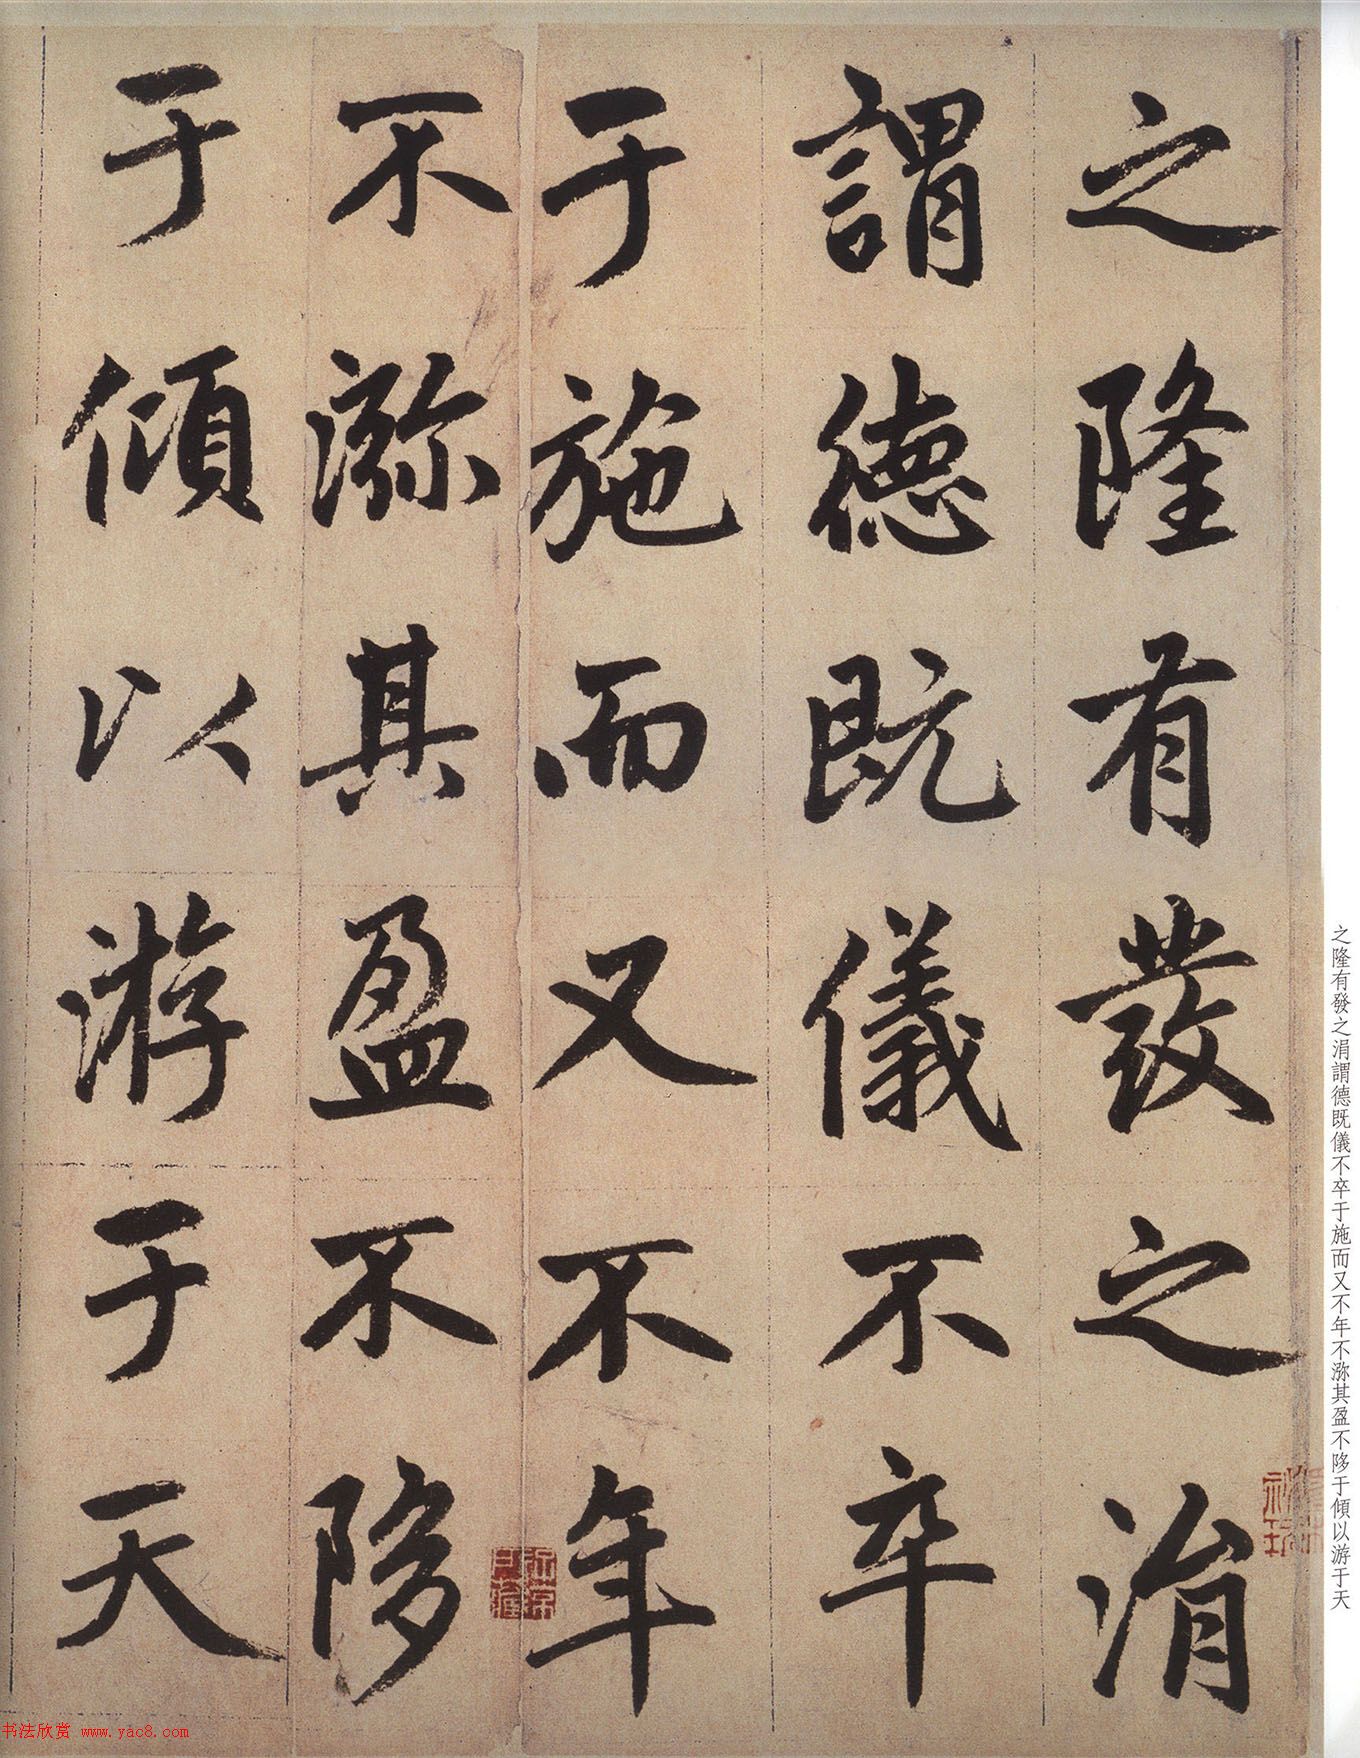 之隆有發之涓
謂德既儀不卒
于施而又不年
不瀰其盈不陊
于傾以游于天
之隆有發之涓謂德既儀不卒于施而又不年不瀰其盈不陊于傾以游于天
书法欣赏 www.yac8.com